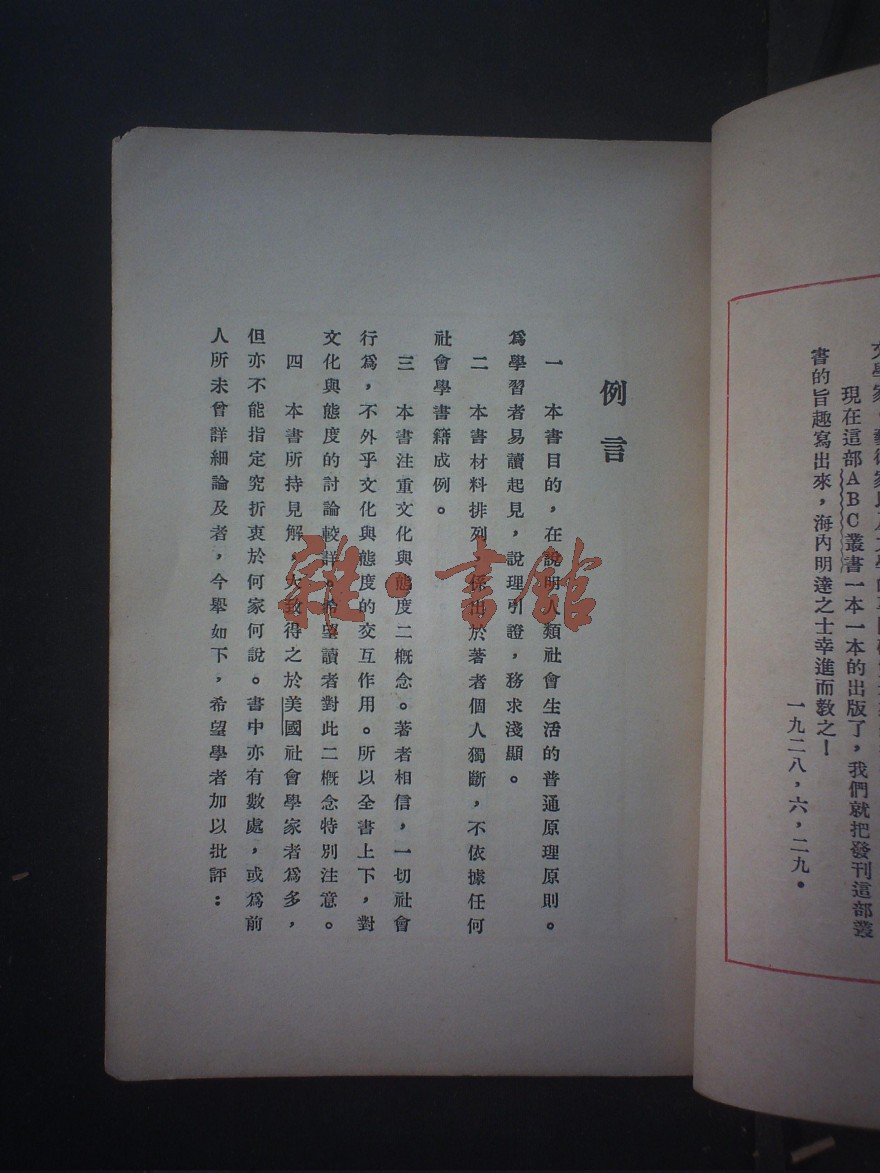 現在這部ABC叢書一本一本的出版了，我們就把發刊這部叢
書的旨趣寫出來，海內明達之士幸進而敎之！
一九二八，六，二九。
例言
一　本書目的，在說明人類社會生活的普通原理原則。
爲學習者易讀起見，說理引證，務求淺顯。
二　本書材料排列，係出於著者個人獨斷，不依據任何
社會學書籍成例。
三　本書注重文化與態度二概念。著者相信，一切社會
行爲，不外乎文化與態度的交互作用。所以全書上下，對
文化與態度的討論較詳。希望讀者對此二概念特別注意。
四　本書所持見解，大致得之於美國社會學家者爲多，
但亦不能指定究折衷於何家何說。書中亦有數處，或爲前
人所未曾詳細論及者，今舉如下，希望學者加以批評：
雜·書館